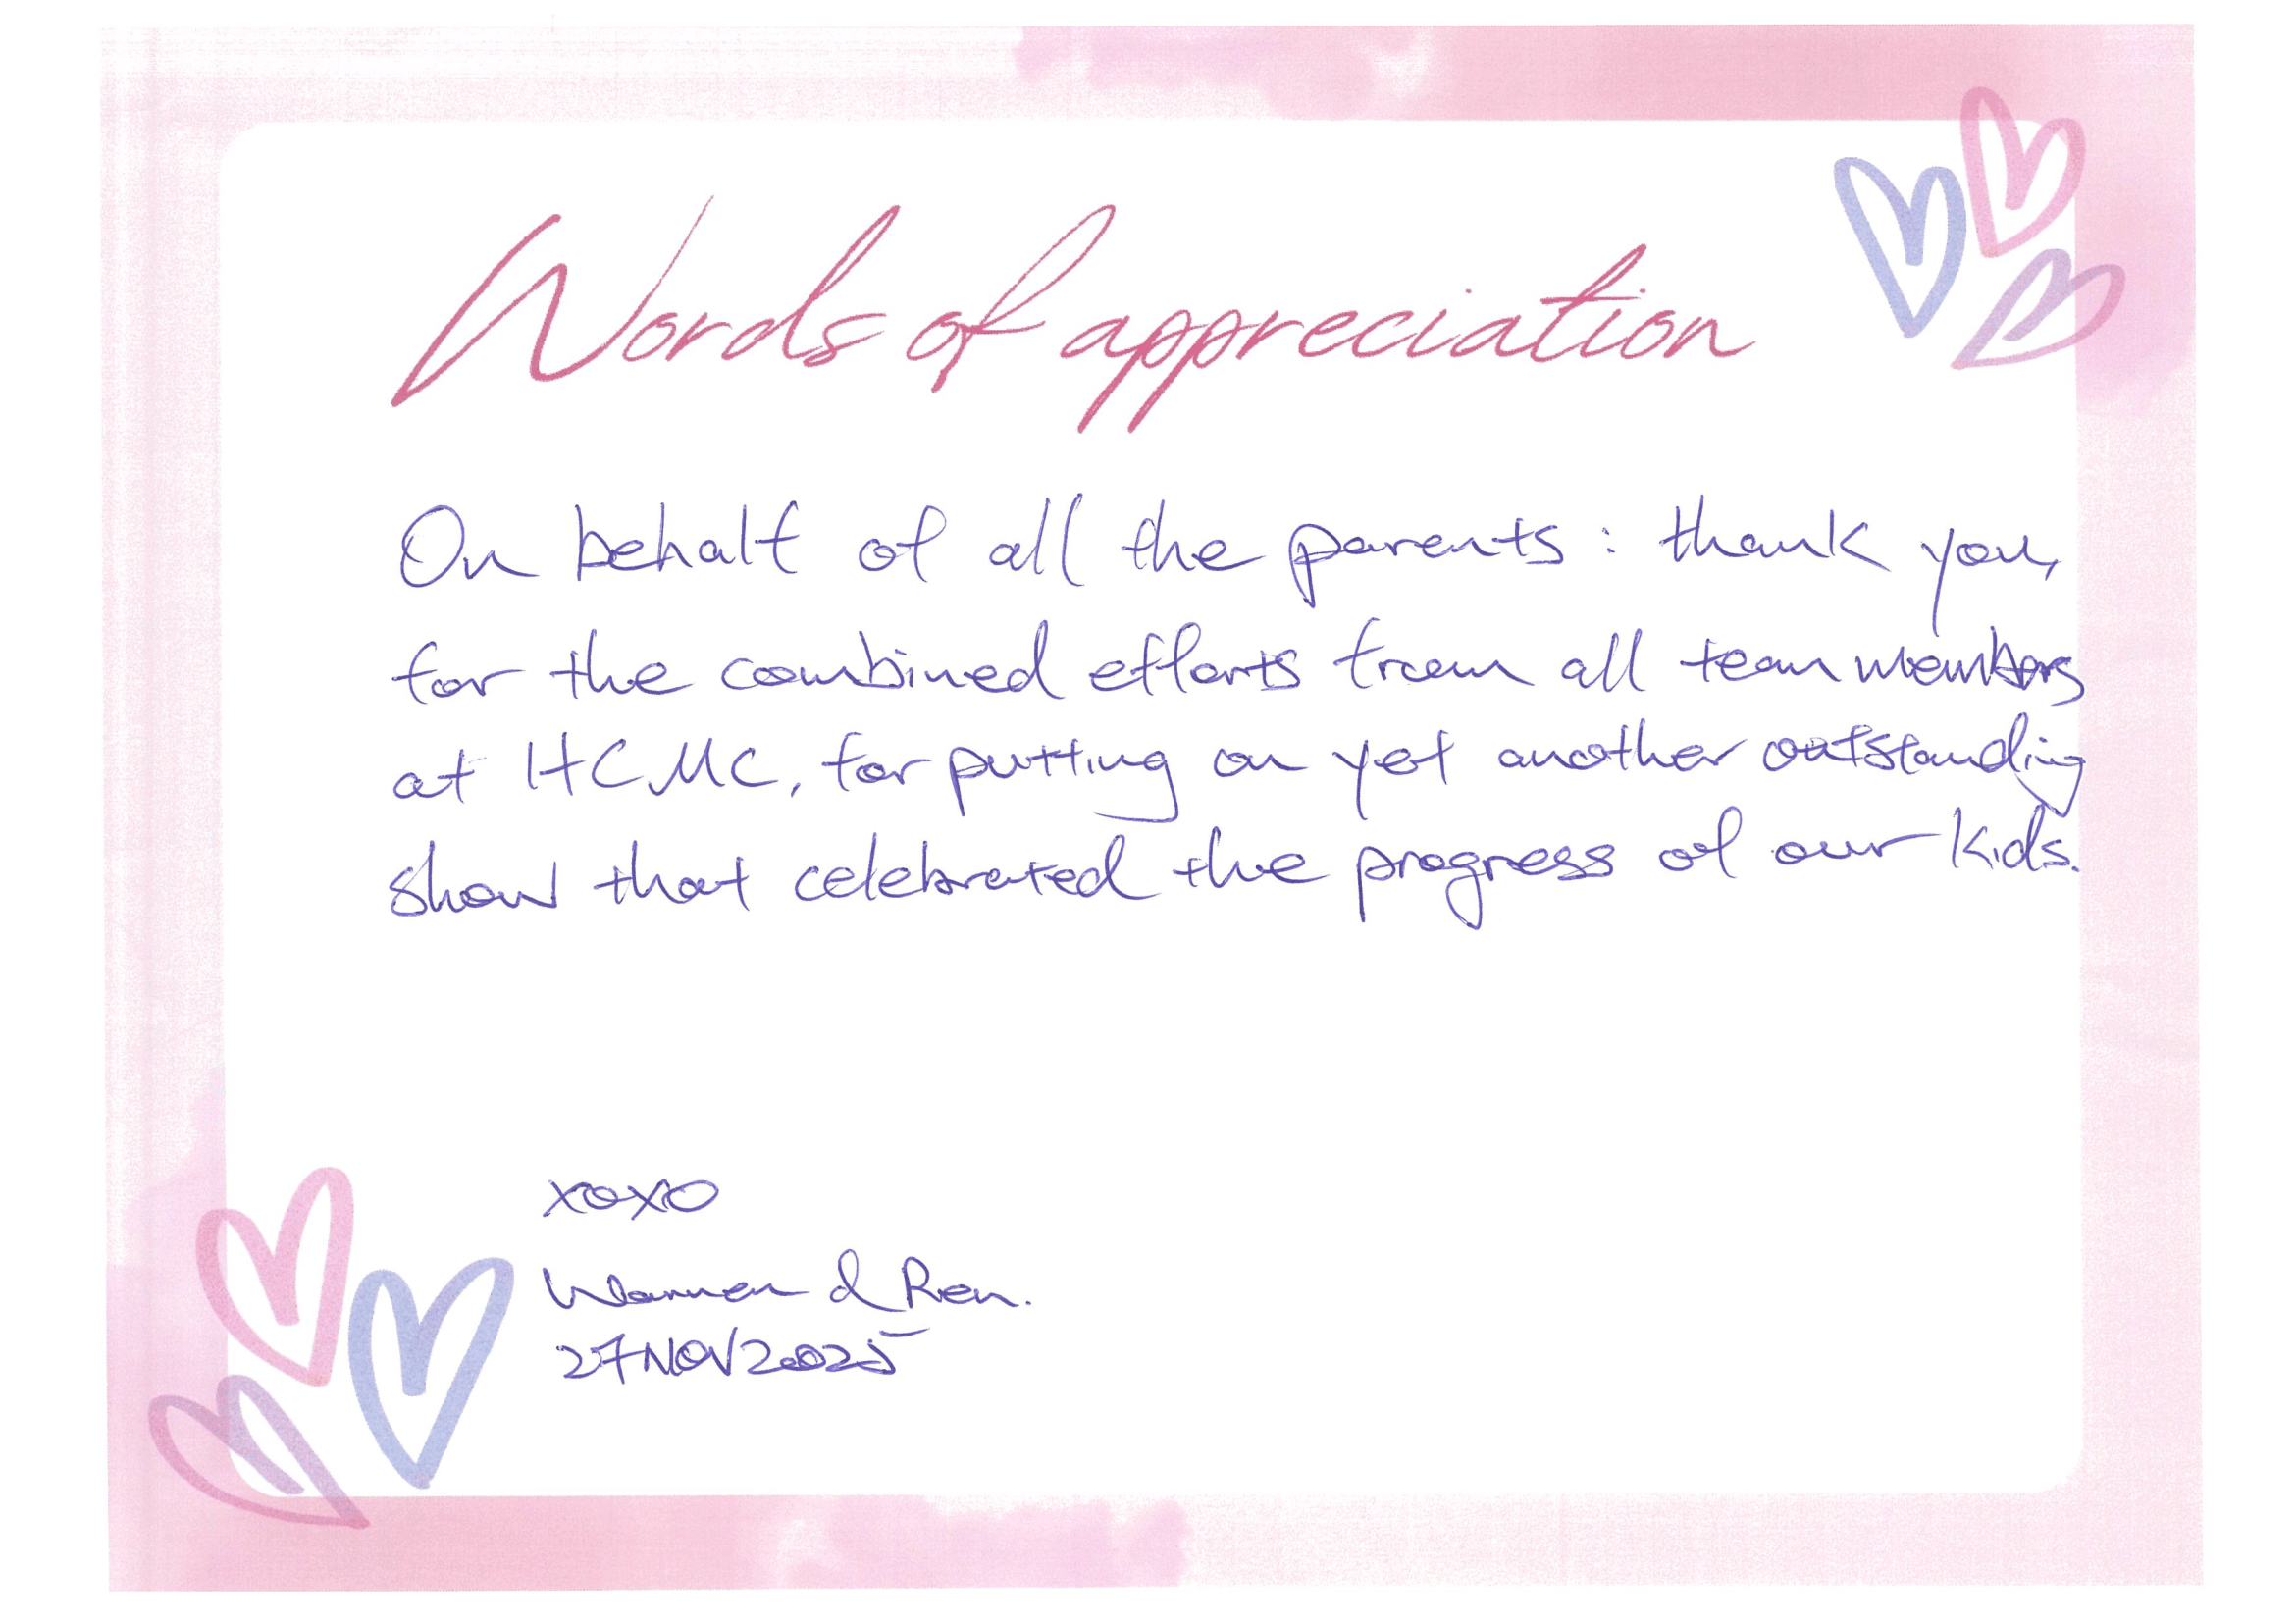 Words of appreciation
On behalf of all the parents: thank you,
for the combined efforts from all team members
at HCMC, for putting on yet another outstanding
show that celebrated the progress of our kids.
xoxo
& Ren.
27NOV2025